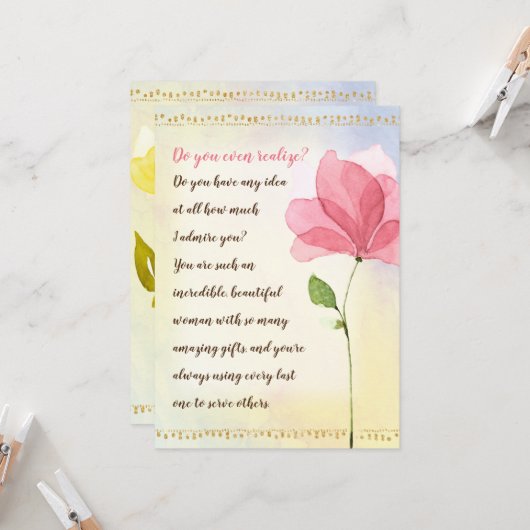 Do you even realize?
Do you have any idea
at all how much
I admire you?
You are such an
incredible, beautiful
woman with so many
amazing gifts, and you're
always using every last
one to serve others.